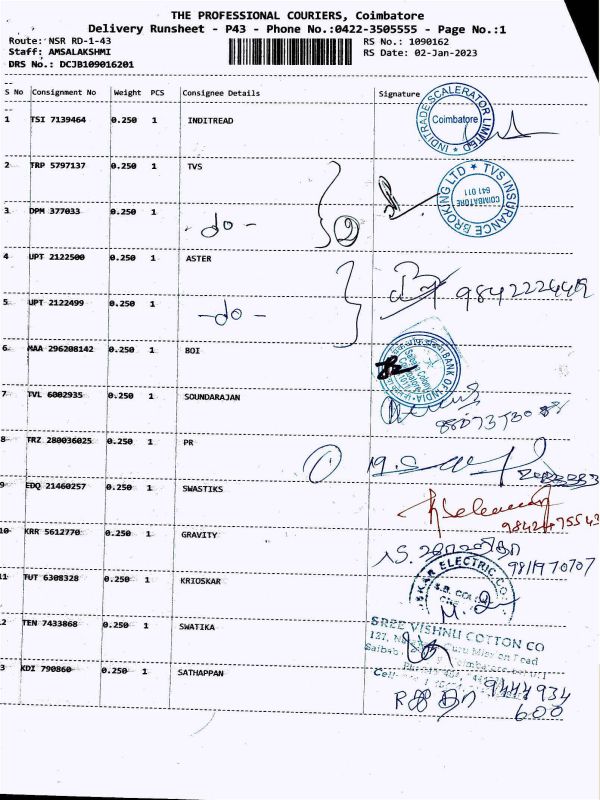 THE PROFESSIONAL COURIERS, Coimbatore
Delivery Runsheet - P43 - Phone No.:0422-3505555 - Page No.:1
Route: NSR RD-1-43
RS No.: 1090162
Staff: AMSALAKSHMI
RS Date: 02-Jan-2023
DRS No.: DCJB109016201
S No Consignment No Weight PCS Consignee Details Signature
1 TSI 7139464 0.250 1 INDITREAD
INDITRADE SCALERATOR LIMITED
Coimbatore
2 TRP 5797137 0.250 1 TVS
TVS INSURANCE BROKING LTD
COIMBATORE
641 011
3 DPM 377033 0.250 1 -do-
2
4 UPT 2122500 0.250 1 ASTER
5 UPT 2122499 0.250 1 -do-
6 MAA 296208142 0.250 1 BOI
BANK OF INDIA
7 TVL 6002935 0.250 1 SOUNDARAJAN
8 TRZ 280036025 0.250 1 PR
9 EDQ 21460257 0.250 1 SWASTIKS
10 KRR 5612770 0.250 1 GRAVITY
9811970707
11 TUT 6308328 0.250 1 KRIOSKAR
SKAR ELECTRIC CO
12 TEN 7433868 0.250 1 SWATIKA
SREE VISHNU COTTON CO
3 KDI 790860 0.250 1 SATHAPPAN
9444934
600